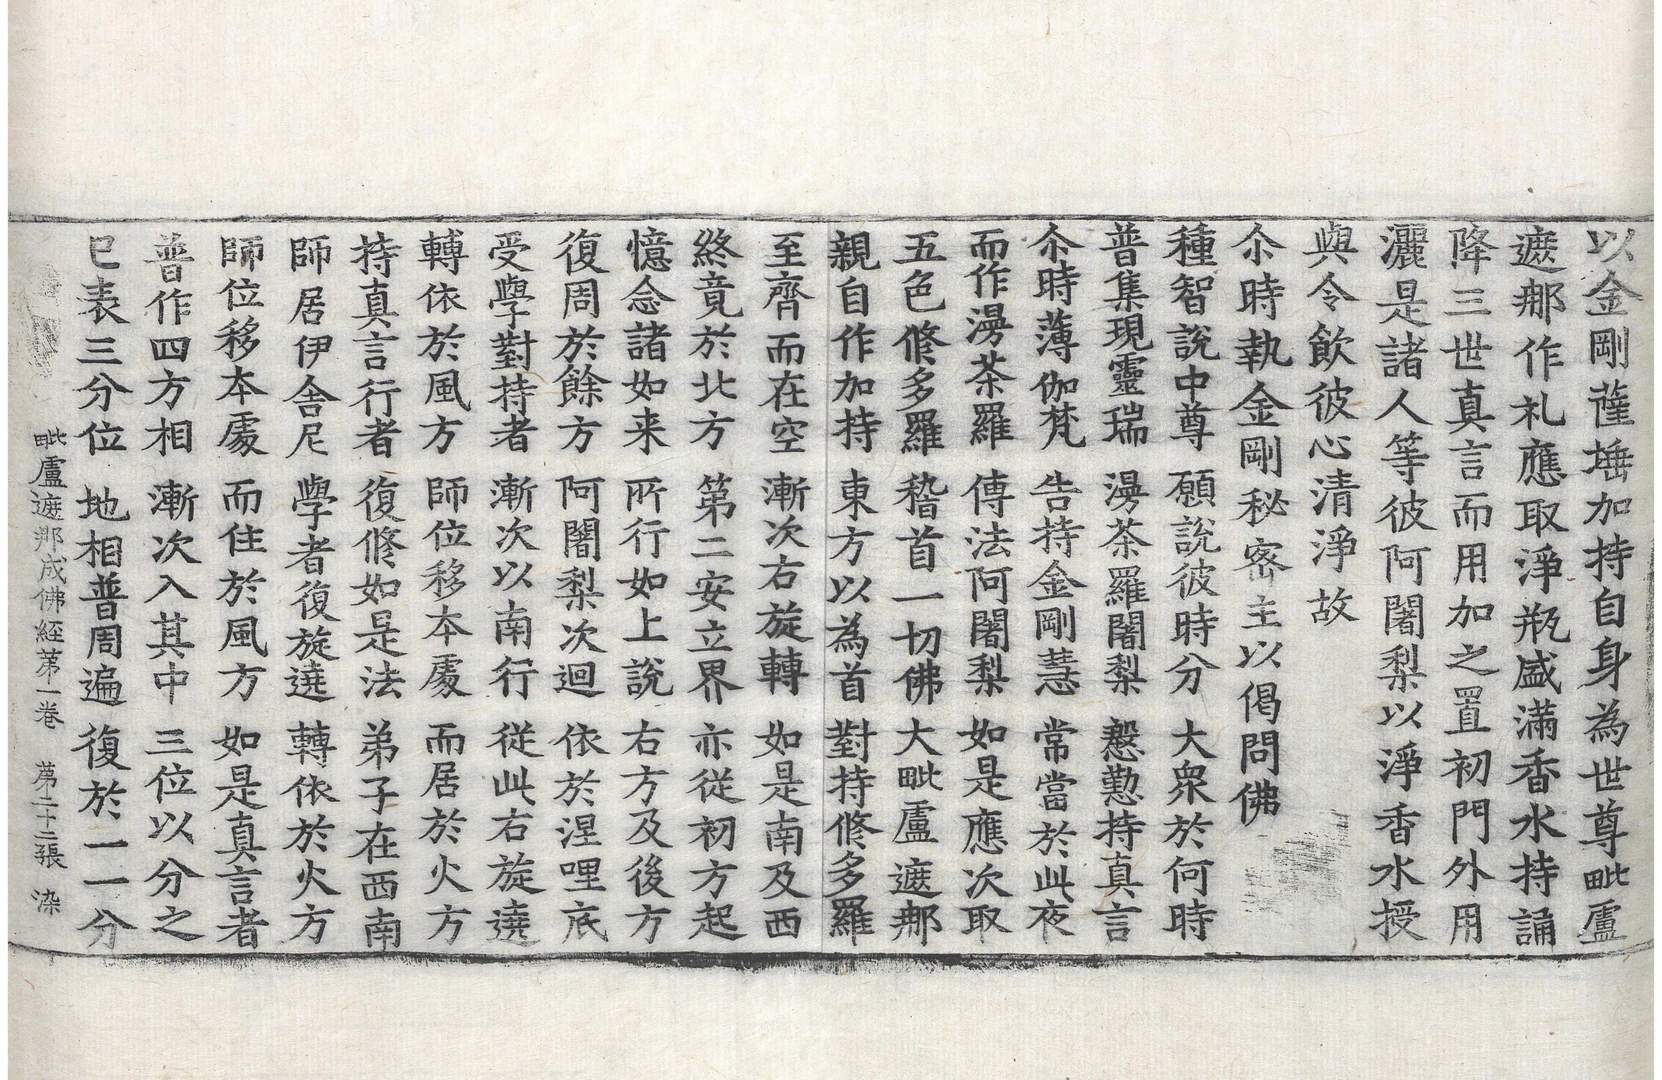 以金剛薩埵加持自身為世尊毗盧
遮那作礼應取淨瓶盛滿香水持誦
降三世真言而用加之置初門外用
灑是諸人等彼阿闍梨以淨香水授
與令飲彼心清淨故
尒時執金剛秘密主以偈問佛
種智說中尊 願說彼時分 大衆於何時
普集現靈瑞 漫茶羅闍梨 慇懃持真言
尒時薄伽梵 告持金剛慧 常當於此夜
而作漫茶羅 傳法阿闍梨 如是應次取
五色修多羅 稽首一切佛 大毗盧遮那
親自作加持 東方以為首 對持修多羅
至齊而在空 漸次右旋轉 如是南及西
終竟於北方 第二安立界 亦從初方起
憶念諸如来 所行如上說 右方及後方
復周於餘方 阿闍梨次迴 依於涅哩底
受學對持者 漸次以南行 從此右旋遶
轉依於風方 師位移本處 而居於火方
持真言行者 復修如是法 弟子在西南
師居伊舍尼 學者復旋遶 轉依於火方
師位移本處 而住於風方 如是真言者
普作四方相 漸次入其中 三位以分之
已表三分位 地相普周遍 復於一一分
毗盧遮那成佛經苐一卷 苐二十二張 染